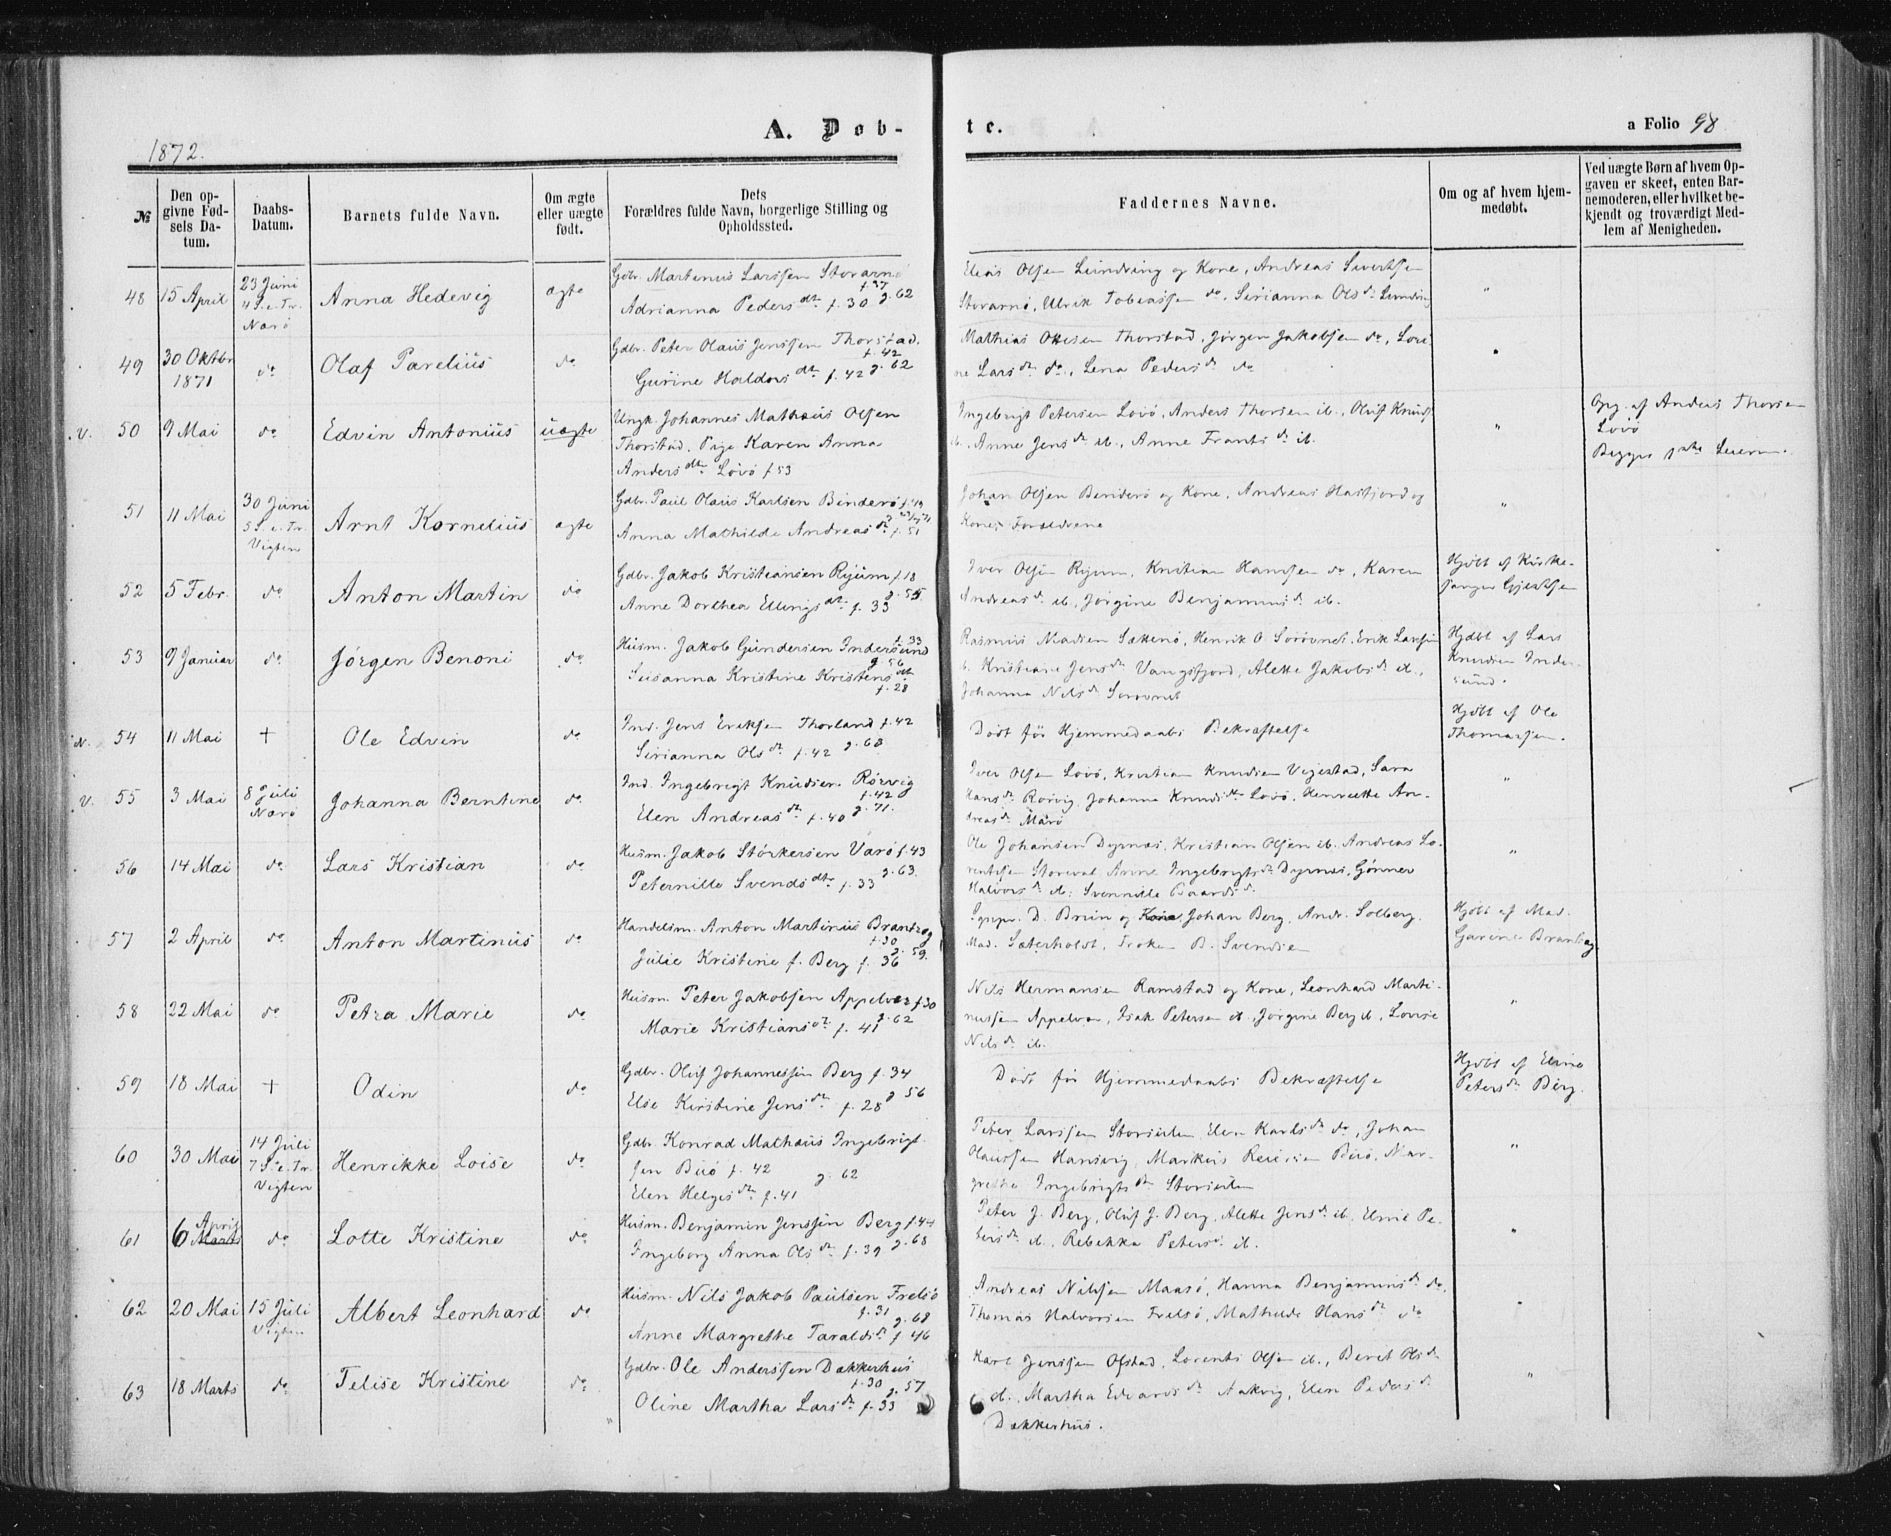 1872.
A. Døb-
te.
a Folio 98
№
Den op-
givne Fød-
sels Da-
tum.
Daabs-
Datum.
Barnets fulde Navn.
Om ægte
eller uægte
født.
Dets
Forældres fulde Navn, borgerlige Stilling og
Opholdssted.
Faddernes Navne.
Om og af hvem hjem-
medøbt.
Ved uægte Børn af hvem Op-
gaven er skeet, enten Bar-
nemoderen, eller hvilket be-
kjendt og troværdigt Med-
lem af Menigheden.
48
15 April
23 Juni
4 S. e. Tr.
Nærø
Anna Hedevig
ægte
Gdbr. Martinus Larssen Storarnø
f. 37
Adrianna Peders dtr f. 30 g. 62
Elias Olsen Lundring og Kone, Andreas Sivertsen
Storarnø, Ulrik Tobiassen do, Sirianna Ols dr Lundring
"
49
30 Oktbr
1871
do
Olaf Parelius
do
Gdbr. Peter Olaus Jenssen Thorstad.
f. 42
Gurine Haldors dtr f. 42 g. 62
Mathias Ottesen Thorstad, Jørgen Jakobsen do, Lovi
ne Lars dr do, Lena Peders dr do
"
V. 50
9 Mai
do
Edvin Antonius
uægte
Ungk. Johannes Mathæus Olsen
Thorstad. Pige Karen Anna
Anders dtr Lovø f. 53
Ingebrigt Petersen Lovø, Anders Thorsen ib., Oluf Knuds
ib., Anne Jens dr ib., Anne Frants dr ib.
"
Opg. af Anders Thorsen
Lovø
Begges 1ste Leierm.
51
11 Mai
30 Juni
5 S. e. Tr.
Vigten
Arnt Kornelius
ægte
Gdbr. Paul Olaus Karlsen Binderø f. 49
Anna Mathilde Andreas dr f. 51
Johan Olsen Benderø og Kone, Andreas Hasfjord og
Kone, Forældrene
"
52
5 Febr.
do
Anton Martin
do
Gdbr. Jakob Kristiansen Ryum f. 18
g. 55
Anne Dorthea Ellings dtr f. 33
Iver Olsen Ryum, Kristian Hansen do, Karen
Andreas dr ib, Jørgine Benjamins dr ib.
Hjdbt af Kirke-
sanger Gjertsen
53
9 Januar
do
Jørgen Benoni
do
Husm. Jakob Gundersen Indersund
f. 33
g. 56
Susanna Kristine Kristens dtr
f. 28
Rasmus Madsen Sættenø, Henrik O Sørøvnet, Erik Larssen
Kristiane Jens dr Vangsfjord, Alette Jakobs dr ib.,
Johanna Nils dr Sørøvnet
Hjdbt af Lars
Knudsen Inder-
sund.
N. 54
11 Mai
+
Ole Edvin
do
Ind. Jens Eriksen Thorland f. 42
Sirianna Ols dr f. 42 g. 68
Dødt før Hjemmedaabs Bekræftelse
Hjdbt af Ole
Thomassen.
V. 55
3 Mai
8 Juli
Nærø
Johanna Berntine
do
Ind. Ingebrigt Knudsen Rørvig
f. 42
Elen Andreas dr f. 40 g. 71.
Iver Olsen Lovø, Kristian Knudsen Vigestad, Sara
Hans dr Rørvig, Johanna Knuds dtr Lovø, Henriette An-
dreas dr Marø
"
56
14 Mai
do
Lars Kristian
do
Husm. Jakob Størkersen Varø f. 43
g. 63.
Peternille Svends dtr f. 33
Ole Johansen Dyrnæs, Kristian Olsen ib. Andreas Lo-
rentsen Storeval, Anne Ingebrigts dr Dyrnæs, Gønner
Halvors dr ib. Svennille Baards dr
"
57
2 April
do
Anton Martinus
do
Handelsm. Anton Martinus Brandzæg
f. 30
Julie Kristine f. Berg f. 36 g. 59.
D. Brun og Kone, Johan Berg, Andr. Solberg,
Mad. Sæterholdt, Frøken B. Svendsen
Hjdbt af Mad.
Garine Brandzæg
58
22 Mai
do
Petra Marie
do
Husm. Peter Jakobsen Appelvær f. 30
Marie Kristians dr f. 41 g. 62
Nils Hermansen Ramstad og Kone, Leonhard Marti-
nussen Appelvær, Isak Petersen ib, Jørgine Berg ib, Lovise
Nils dr ib.
"
59
18 Mai
+
Odin
do
Gdbr. Oluf Johannessen Berg f. 34
Else Kirstine Jens dr f. 28 g. 56
Dødt før Hjemmedaabs Bekræftelse
Hjdbt af Eline
Peters dr Berg.
60
30 Mai
14 Juli
7 S. e. Tr.
Vigten
Henrikke Loise
do
Gdbr. Konrad Mathæus Ingebrigt-
sen Buø f. 42
g. 62
Elen Helges dr f. 41
Peter Larssen Storsulen, Elen Karls dr do, Johan
Olaussen Hansvig, Markus Reiersen Buø, Mar-
grethe Ingebrigts dtr Storsulen
"
61
April
6 Marts
do
Lotte Kristine
do
Husm. Benjamin Jenssen Berg f. 44
Ingeborg Anna Ols dr f. 39 g. 68
Peter J. Berg, Oluf J. Berg, Alette Jens dr ib, Elnie Pe-
ters dr ib, Rebekka Peters dr ib.
"
62
20 Mai
15 Juli
Vigten
Albert Leonhard
do
Husm. Nils Jakob Paulsen Frelsø
f. 31
g. 68
Anne Margrethe Taralds dr f. 46
Andreas Nilssen Maasø, Hanna Benjamins dr do,
Thomas Halvorsen Frelsø, Mathilde Hans dr do
"
63
18 Marts
do
Telise Kristine
do
Gdbr. Ole Anderssen Dækkerhus
f. 30
g. 57
Oline Martha Lars dr f. 33
Karl Jenssen Ofstad, Lorents Olsen ib., Berit Ols dr
ib., Martha Edvards dr Aakvig, Elen Peders dr
Dækkerhus.
"